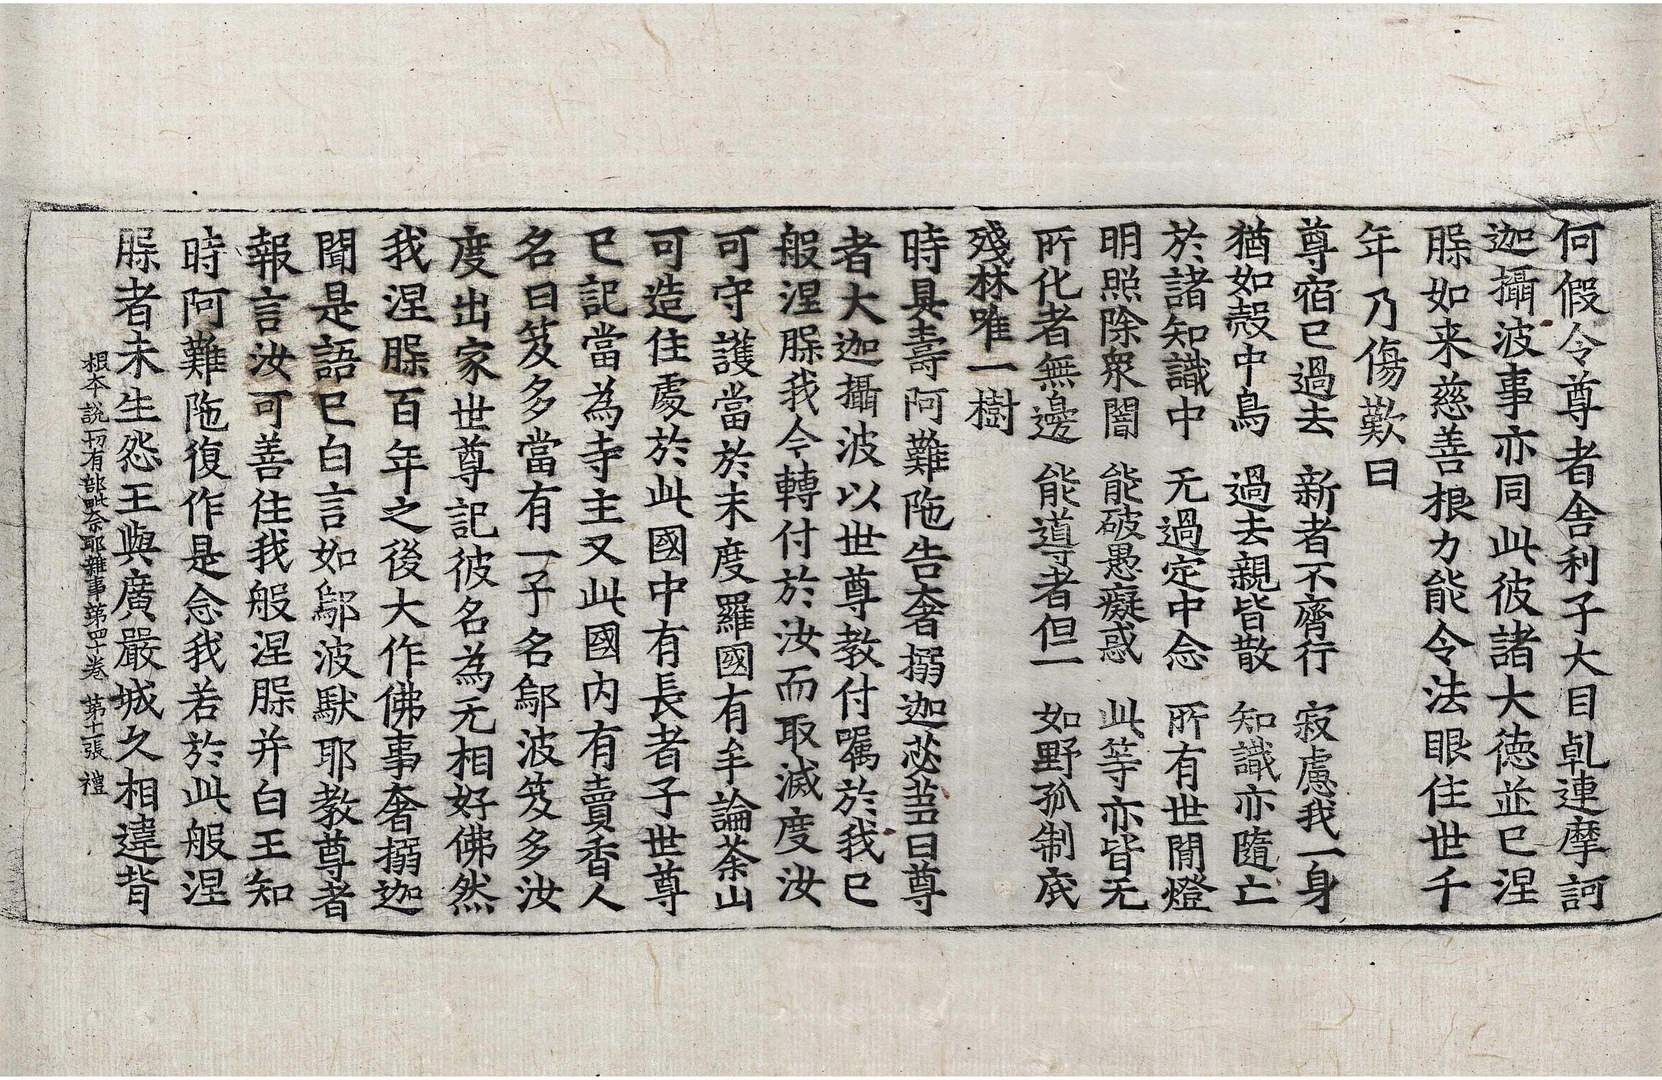 何假令尊者舍利子大目乹連摩訶
迦攝波事亦同此彼諸大德並已涅
槃如来慈善根力能令法眼住世千
年乃傷歎曰
尊宿已過去 新者不齊行 寂慮我一身
猶如㲉中鳥 過去親皆散 知識亦隨亡
於諸知識中 无過定中念 所有世間燈
明照除衆闇 能破愚癡惑 此等亦皆无
所化者無邊 能導者但一 如野孤制底
殘林唯一樹
時具壽阿難陁告奢搦迦苾蒭曰尊
者大迦攝波以世尊教付囑於我已
般涅槃我今轉付於汝而取滅度汝
可守護當於末度羅國有牟論荼山
可造住處於此國中有長者子世尊
已記當為寺主又此國内有賣香人
名曰笈多當有一子名鄔波笈多汝
度出家世尊記彼名為无相好佛然
我涅槃百年之後大作佛事奢搦迦
聞是語已白言如鄔波馱耶教尊者
報言汝可善住我般涅槃并白王知
時阿難陁復作是念我若於此般涅
槃者未生怨王與廣嚴城久相違背
根本說一切有部毗奈耶雜事第四十卷 第十一張 禮